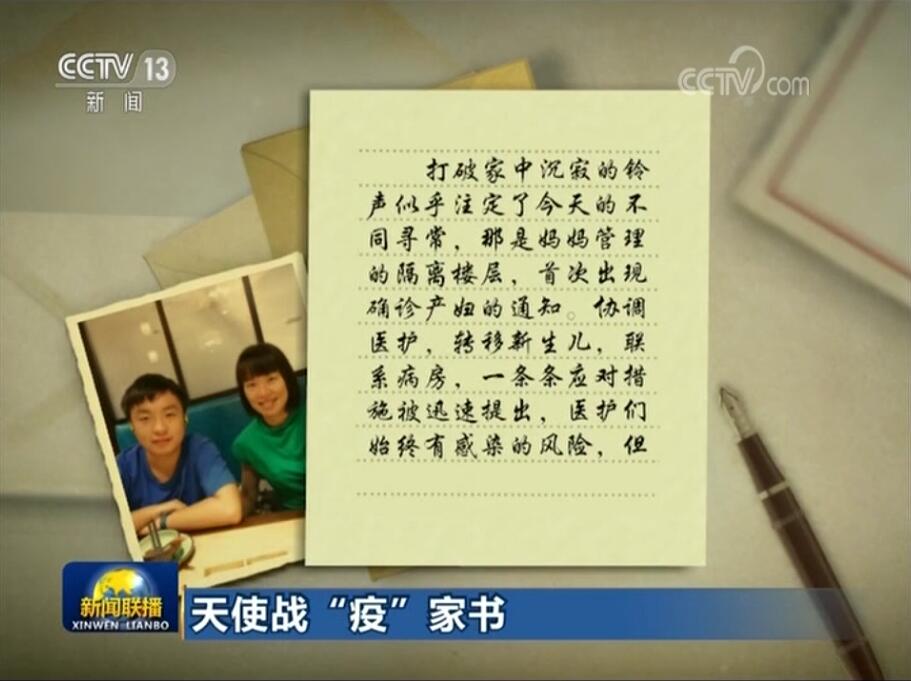 CCTV 13
新闻
CCTV.com
打破家中沉寂的铃
声似乎注定了今天的不
同寻常，那是妈妈管理
的隔离楼层，首次出现
确诊产妇的通知。协调
医护，转移新生儿，联
系病房，一条条应对措
施被迅速提出，医护们
始终有感染的风险，但
新闻联播
XINWEN LIANBO
天使战“疫”家书